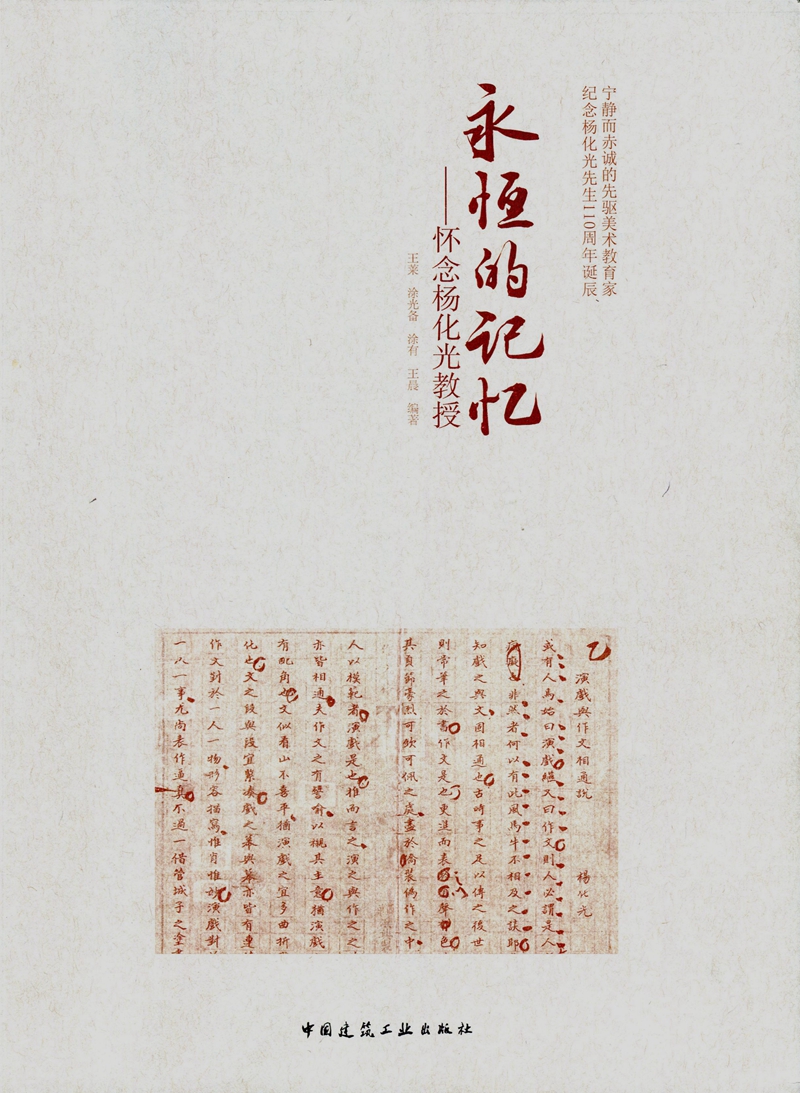 宁静而赤诚的先驱美术教育家
纪念杨化光先生110周年诞辰、
永恒的记忆
——怀念杨化光教授
王莱 涂光备 涂有 王晨 编著
演戲與作文相通說 楊化光
或有人焉始曰演戲繼又曰作文則人必謂是人
戲也非然者何以有此風馬牛不相及之談耶
知戲之與文固相通也古時事之足以傳之後世
則常筆之於書作文是也更進而表
其貞節豪烈可欽可佩之處盡於喬裝偽作之中
人以模範者演戲是也推而言之演之與作之之
亦皆相通夫作文之有譬俞以襯其主意猶演戲
有配角也文似看山不喜平猶演戲之宜多曲折
化也文之段與段宜緊湊戲之幕與幕亦皆有連
作文對於一人一物形容描寫惟肖惟 演戲對
一人一事尤尚表作逼真不過一借管城子之
中国建筑工业出版社